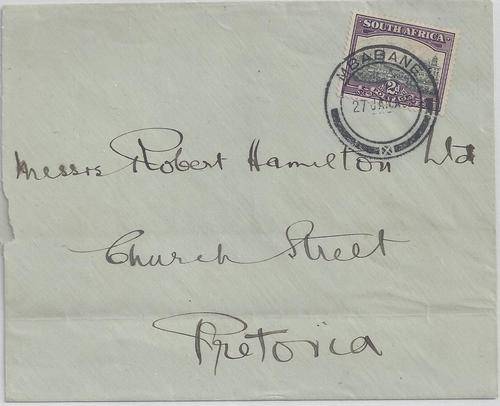 SOUTH AFRICA
2D
MBABANE
27 JAN
Messrs Robert Hamilton Ltd
Church Street
Pretoria